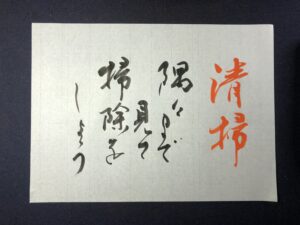 清掃
隅々まで
見て
掃除を
しよう